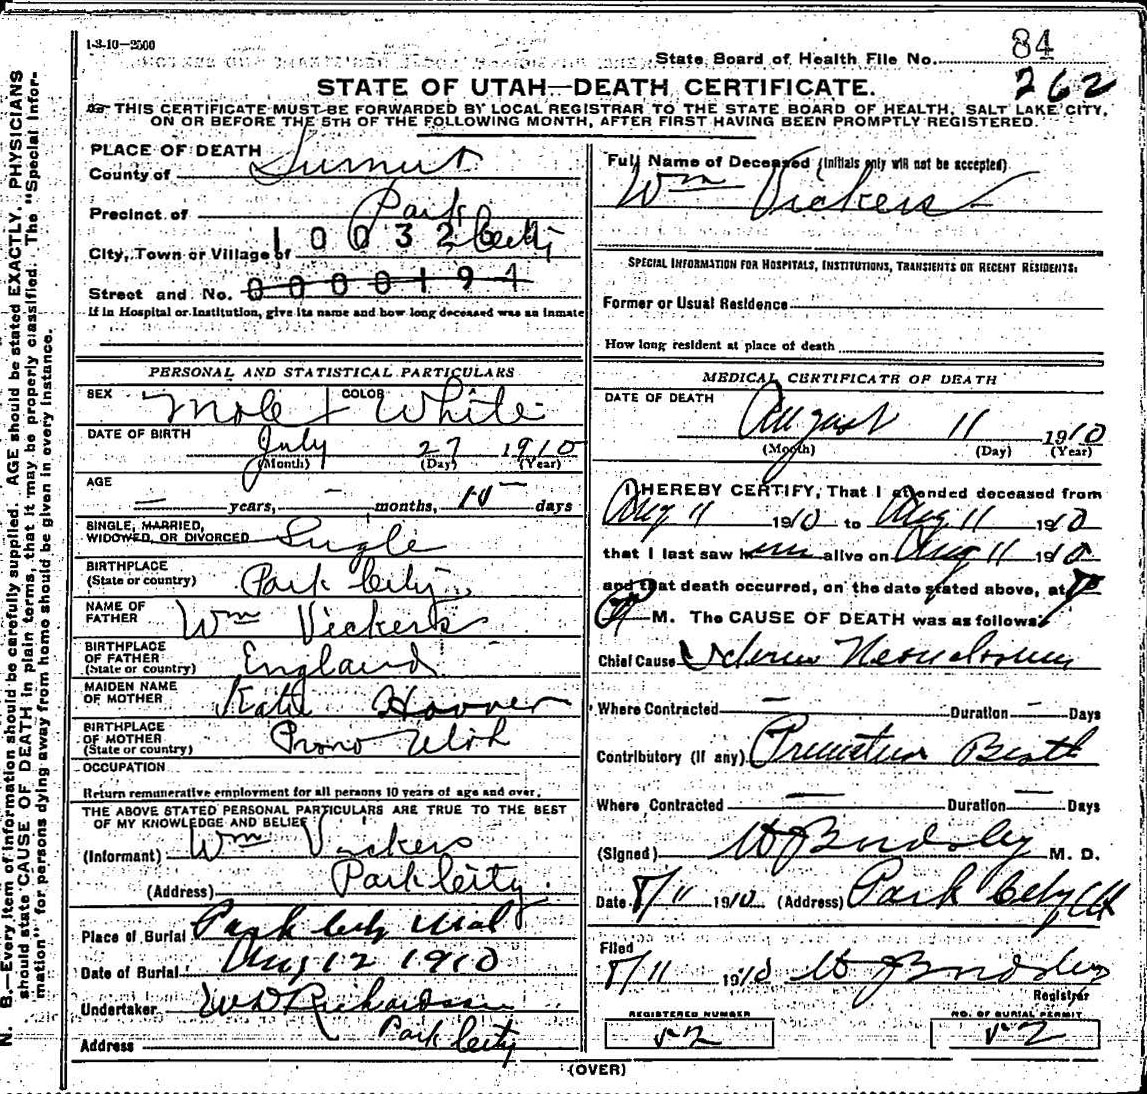 1-3-10-2500
State Board of Health File No. 84
262
STATE OF UTAH—DEATH CERTIFICATE.
THIS CERTIFICATE MUST BE FORWARDED BY LOCAL REGISTRAR TO THE STATE BOARD OF HEALTH, SALT LAKE CITY,
ON OR BEFORE THE 5TH OF THE FOLLOWING MONTH, AFTER FIRST HAVING BEEN PROMPTLY REGISTERED.
PLACE OF DEATH
County of Summit
Precinct of Park
City, Town or Village of City
10032
Street and No. 0000194
If in Hospital or Institution, give its name and how long deceased was an inmate
PERSONAL AND STATISTICAL PARTICULARS
SEX Male COLOR White
DATE OF BIRTH July 27 1910
(Month) (Day) (Year)
AGE — years, — months, days
SINGLE, MARRIED,
WIDOWED, OR DIVORCED Single
BIRTHPLACE
(State or country) Park City
NAME OF
FATHER Wm Vickers
BIRTHPLACE
OF FATHER
(State or country) England
MAIDEN NAME
OF MOTHER Katie Hoover
BIRTHPLACE
OF MOTHER
(State or country) Provo Utah
OCCUPATION
Return remunerative employment for all persons 10 years of age and over.
THE ABOVE STATED PERSONAL PARTICULARS ARE TRUE TO THE BEST
OF MY KNOWLEDGE AND BELIEF
(Informant) Wm Vickers
(Address) Park City
Place of Burial Park City Utah
Date of Burial Aug 12 1910
Undertaker W D Richardson
Address Park City
Full Name of Deceased (Initials only will not be accepted)
Wm Vickers
SPECIAL INFORMATION FOR HOSPITALS, INSTITUTIONS, TRANSIENTS OR RECENT RESIDENTS:
Former or Usual Residence
How long resident at place of death
MEDICAL CERTIFICATE OF DEATH
DATE OF DEATH
August 11 1910
(Month) (Day) (Year)
I HEREBY CERTIFY, That I attended deceased from
Aug 11 1910 to Aug 11 1910
that I last saw him alive on Aug 11 1910
and that death occurred, on the date stated above, at
M. The CAUSE OF DEATH was as follows:
Chief Cause
Where Contracted — Duration — Days
Contributory (if any) Premature Birth
Where Contracted — Duration — Days
(Signed) M. D.
Date 8/11 1910 (Address) Park City Ut
Filed
8/11 1910
Registrar
REGISTERED NUMBER
52
NO. OF BURIAL PERMIT
52
(OVER)
N. B.—Every item of information should be carefully supplied. AGE should be stated EXACTLY. PHYSICIANS
should state CAUSE OF DEATH in plain terms, that it may be properly classified. The "Special Infor-
mation" for persons dying away from home should be given in every instance.